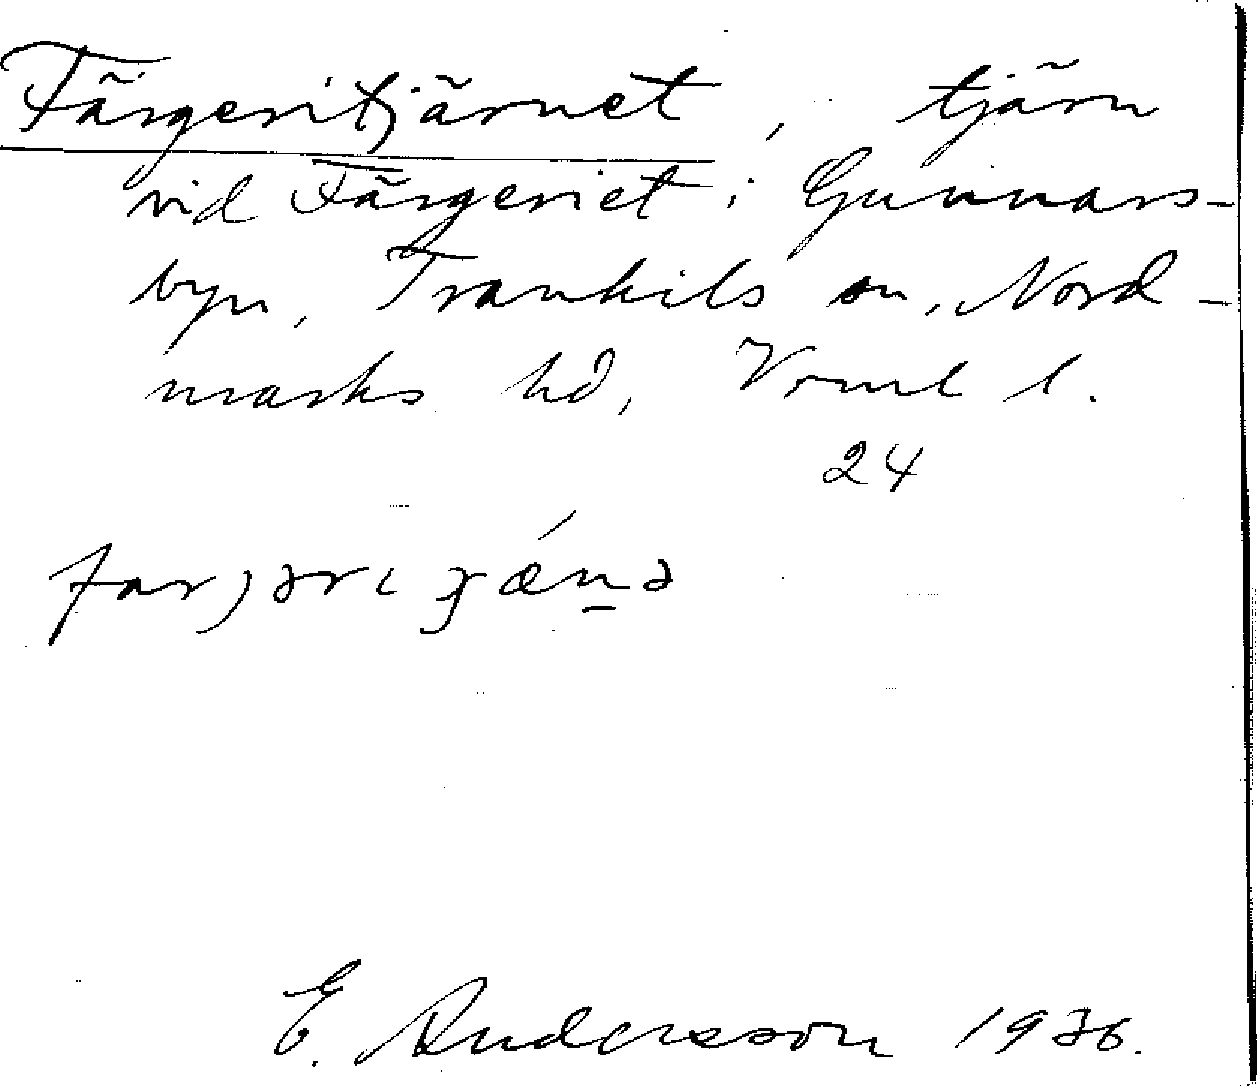 Färgeritjärnet, tjärn
vid Färgeriet i Gunnars-
byn, Trankils sn, Nord-
marks hd, Vrml l.
24
E. Andersson 1936.